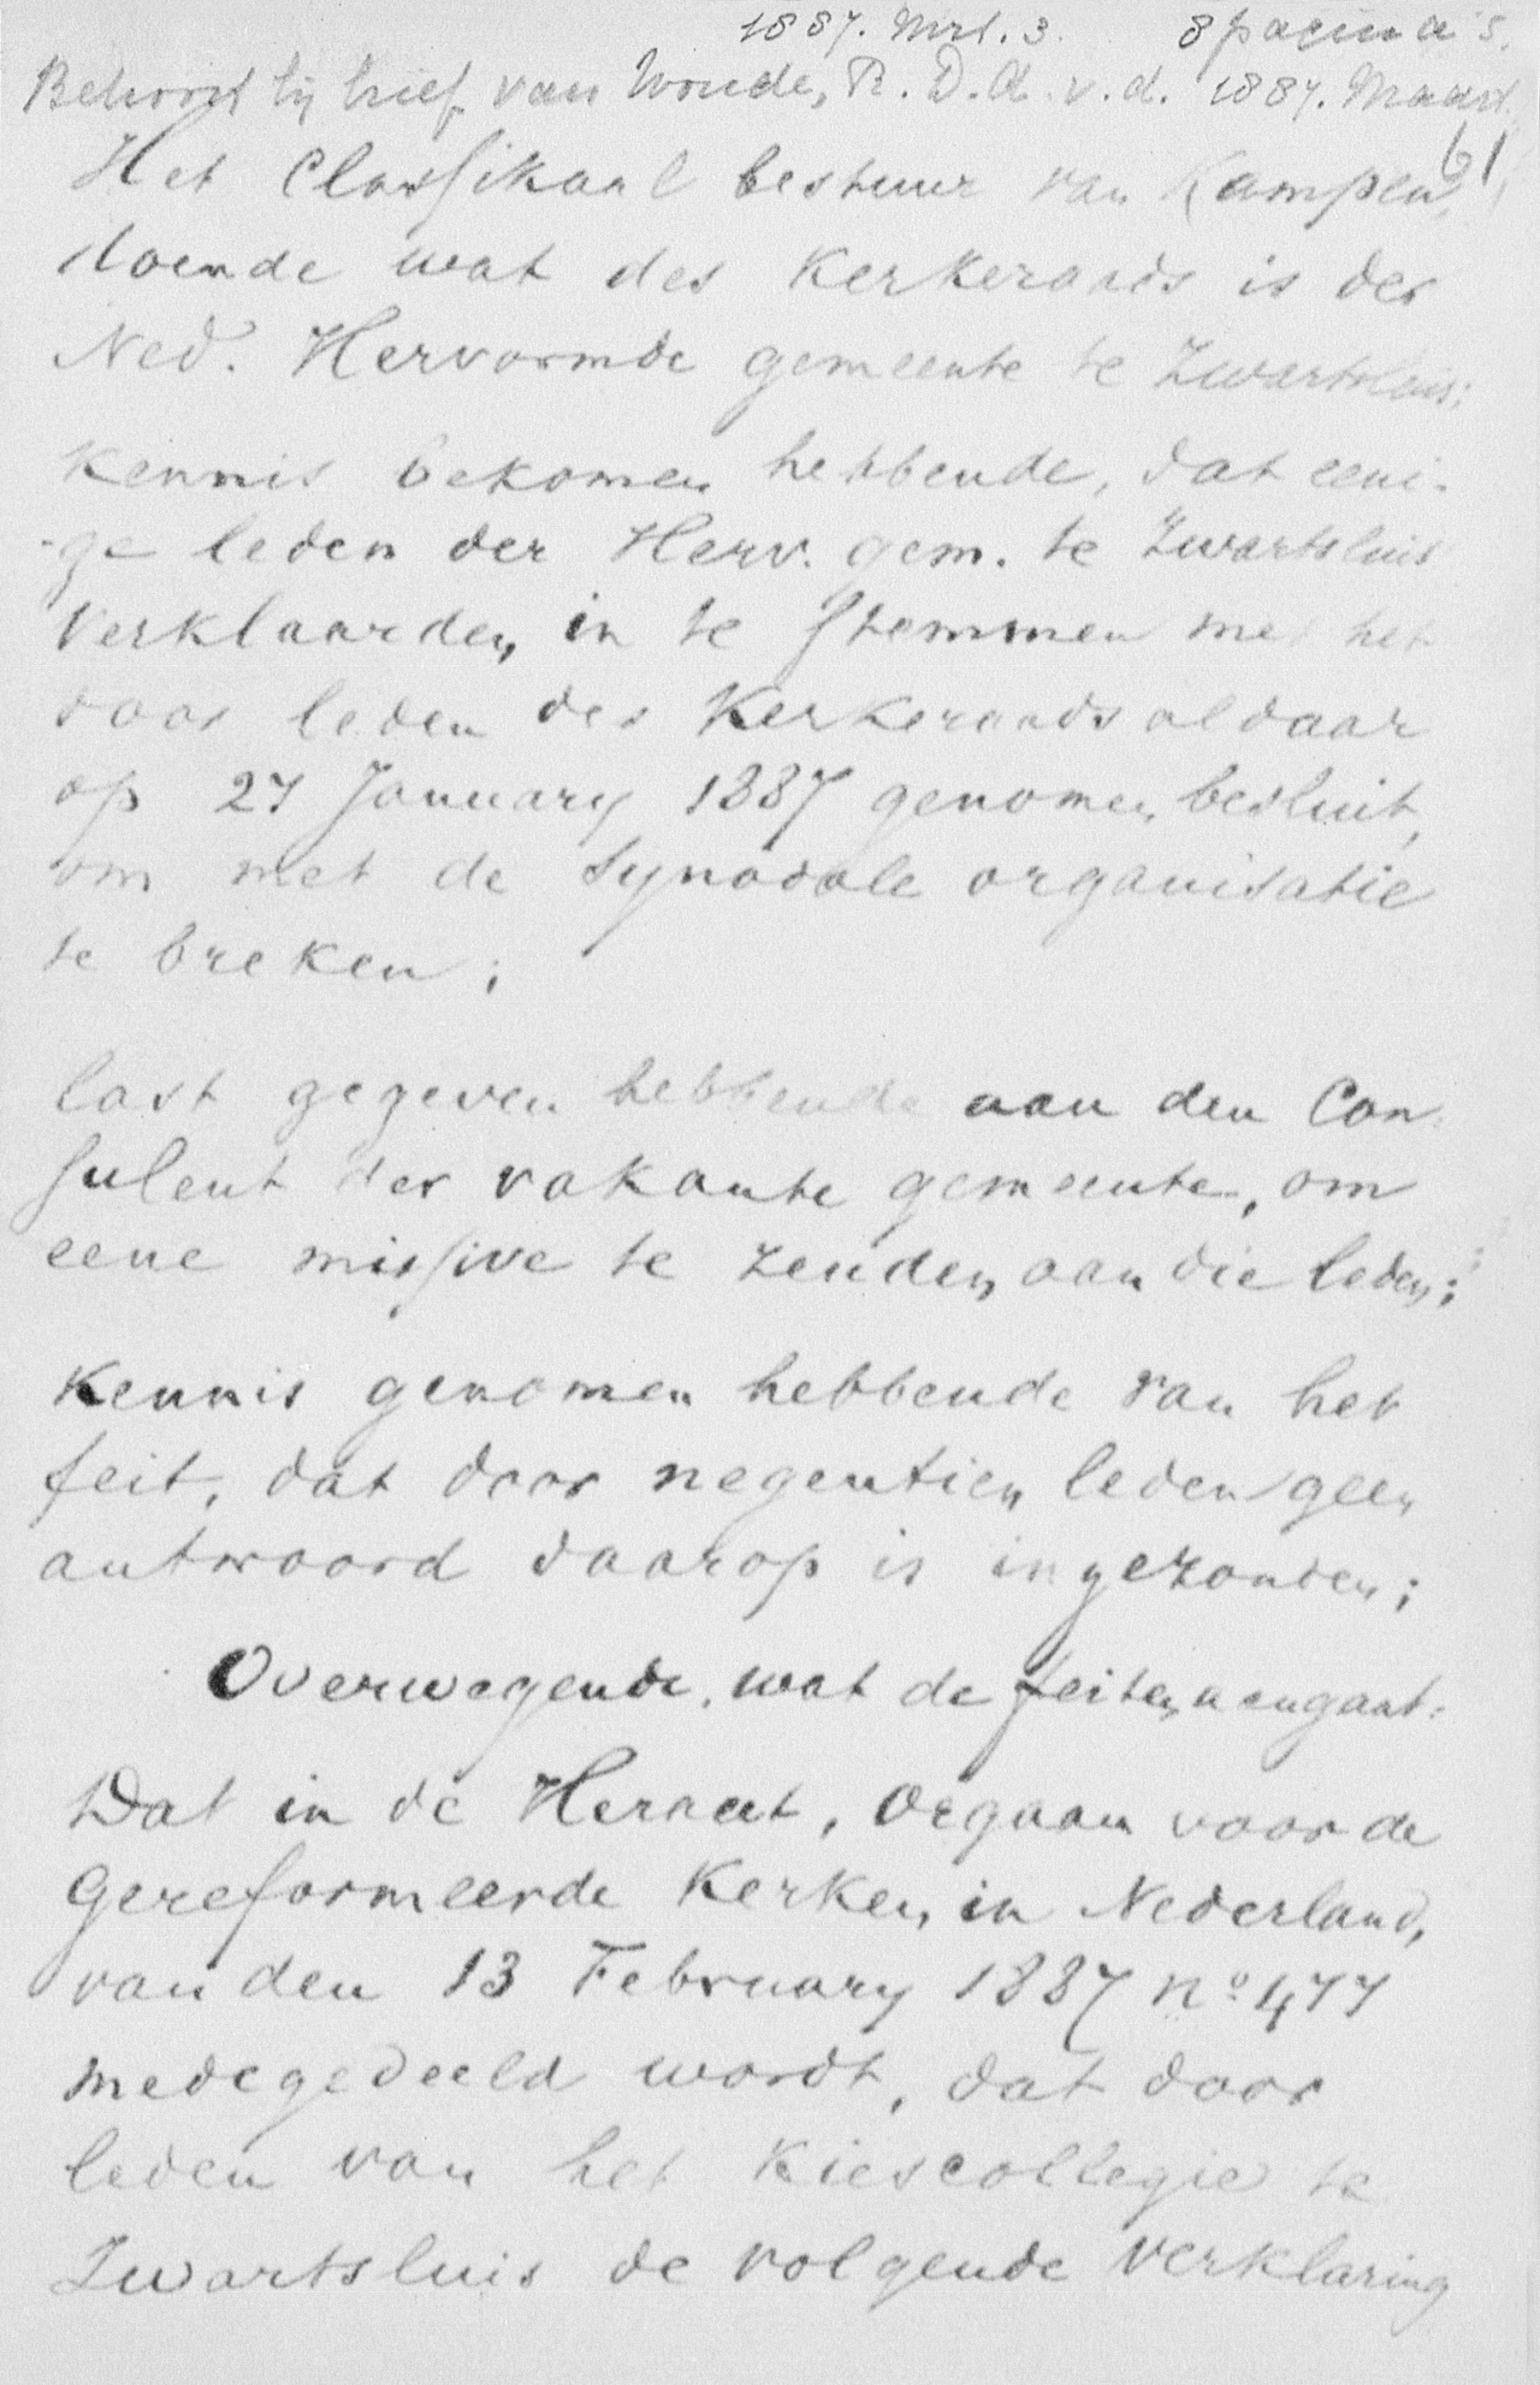 1887. Mrt. 3. 8 pagina's.
Behoort bij brief van Woude, R. D. A. v. d. 1887. Maart
61
Het Classikaal bestuur van Kampen,
doende wat des Kerkeraads is der
Ned. Hervormde gemeente te Zwartsluis;
Kennis bekomen hebbende, dat eeni-
-ge leden der Herv. gem. te Zwartsluis
verklaarden, in te stemmen met het
door leden des Kerkeraads aldaar
op 27 January 1887 genomen besluit,
om met de Synodale organisatie
te breken;
last gegeven hebbende aan den Con-
sulent der vakante gemeente, om
eene missive te zenden aan die leden;
Kennis genomen hebbende van het
feit, dat door negentien leden geen
antwoord daarop is ingezonden;
Overwegende, wat de feiten aengaat:
Dat in de Heraut, Orgaan voor de
Gereformeerde Kerken, in Nederland,
van den 13 February 1887 no 477
medegedeeld wordt, dat door
leden van het Kiescollegie te
Zwartsluis de volgende verklaring